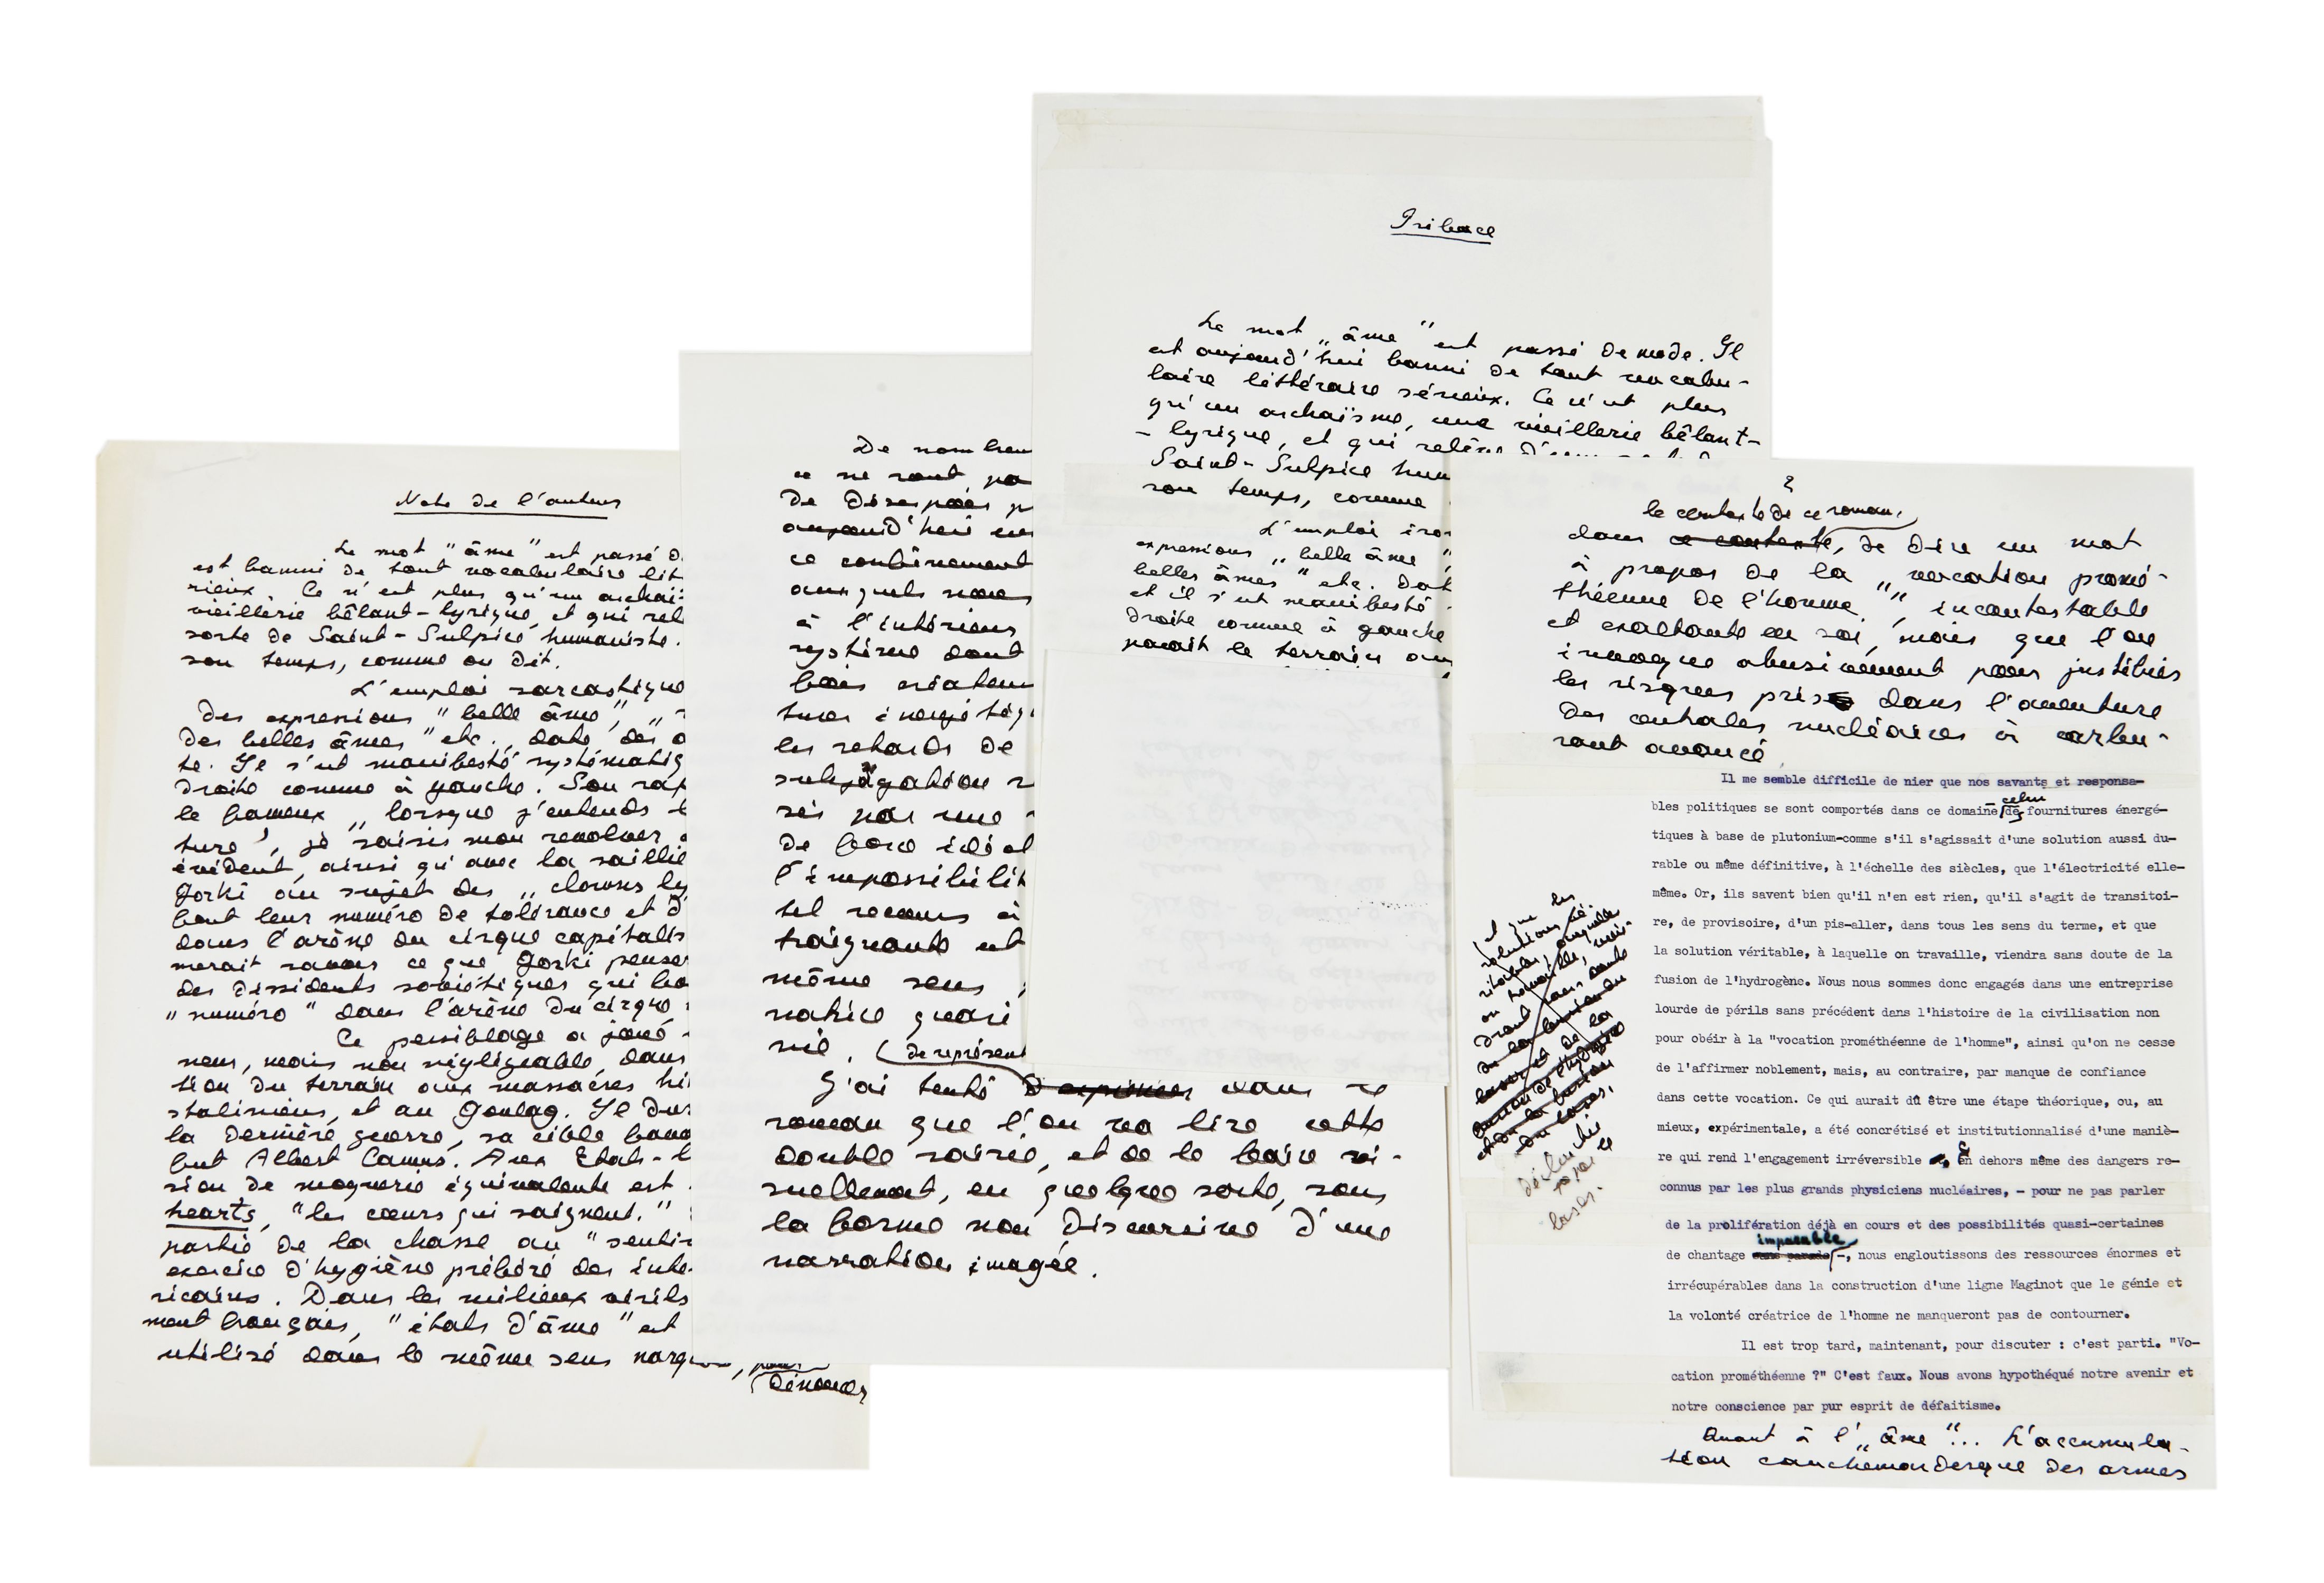 Note de l'auteur
Le mot "âme" est passé d
est banni de tout vocabulaire lit
rieux. Ce n'est plus qu'un archaï
vieillerie bêlant-lyrique, et qui rel
sorte de Saint-Sulpice humaniste.
son temps, comme on dit.
L'emploi sarcastique
des expressions "belle âme",
des belles âmes" etc., date des a
te. Il s'est manifesté systématiq
droite comme à gauche. Son rap
le fameux „lorsque j'entends l
ture", je saisis mon revolver
évident, ainsi qu'avec la saillie
Gorki au sujet des „clowns ly
font leur numéro de tolérance et d'
dans l'arène du cirque capitalis
merait savoir ce que Gorki penser
des dissidents soviétiques qui fo
"numéro" dans l'arène du cirque
Ce persiflage a joué
neur, mais non négligeable, dans
tion du terrain aux massacres hi
staliniens, et au Goulag. Il dur
la dernière guerre, sa cible favo
fut Albert Camus. Aux Etats-U
sion de moquerie équivalente est
hearts, "les cœurs qui saignent."
partie de la chasse au "senti
exercice d'hygiène préféré des inte
ricains. Dans les milieux virils
ment français, "états d'âme" est
utilisé dans le même sens narquois, pour
dénoncer
De nombreu
ce ne sont pa
de désespoir p
aujourd'hui un
ce confinement
auxquels nous
à l'intérieur
système dont
fois créateur
tures énergétiq
les retards de
subjugation
sés par une
de force idéol
l'impossibilit
tel recours à
traignante est
même sens,
native quasi
rie.
(de représent
J'ai tenté d'exprimer dans ce
roman que l'on va lire cette
double soirée, et de le faire vi-
suellement, en quelque sorte, sous
la forme non discursive d'une
narration imagée.
Préface
Le mot „âme" est passé de mode. Il
est aujourd'hui banni de tout vocabu-
laire littéraire sérieux. Ce n'est plus
qu'un archaïsme, une vieillerie bêlant-
-lyrique, et qui relève d'une
Saint-Sulpice hum
son temps, comme
L'emploi iro
expressions „belle âme"
belles âmes" etc. dat
et il s'est manifesté
droite comme à gauche
parait le terrain au
2
le contexte de ce roman,
dans ce contexte, de dire un mot
à propos de la „vocation promé-
théenne de l'homme", incontestable
et exaltante en soi, mais que l'on
invoque abusivement pour justifier
les risques pris dans l'aventure
des centrales nucléaires à carbu-
rant avancé
Il me semble difficile de nier que nos savants et responsa-
bles politiques se sont comportés dans ce domaine - celui de fournitures énergé-
tiques à base de plutonium-comme s'il s'agissait d'une solution aussi du-
rable ou même définitive, à l'échelle des siècles, que l'électricité elle-
même. Or, ils savent bien qu'il n'en est rien, qu'il s'agit de transitoi-
re, de provisoire, d'un pis-aller, dans tous les sens du terme, et que
la solution véritable, à laquelle on travaille, viendra sans doute de la
fusion de l'hydrogène. Nous nous sommes donc engagés dans une entreprise
lourde de périls sans précédent dans l'histoire de la civilisation non
pour obéir à la "vocation prométhéenne de l'homme", ainsi qu'on ne cesse
de l'affirmer noblement, mais, au contraire, par manque de confiance
dans cette vocation. Ce qui aurait dû être une étape théorique, ou, au
mieux, expérimentale, a été concrétisé et institutionnalisé d'une maniè-
re qui rend l'engagement irréversible en dehors même des dangers re-
connus par les plus grands physiciens nucléaires, - pour ne pas parler
de la prolifération déjà en cours et des possibilités quasi-certaines
imparable
de chantage sans parade -, nous engloutissons des ressources énormes et
irrécupérables dans la construction d'une ligne Maginot que le génie et
la volonté créatrice de l'homme ne manqueront pas de contourner.
Il est trop tard, maintenant, pour discuter : c'est parti. "Vo-
cation prométhéenne ?" C'est faux. Nous avons hypothéqué notre avenir et
notre conscience par pur esprit de défaitisme.
Quant à l'„âme"... L'accumula-
tion cauchemardesque des armes
(et que les
solutions vé-
ritables, auxquelles
on travaille, vien-
dront sans doute
laser.